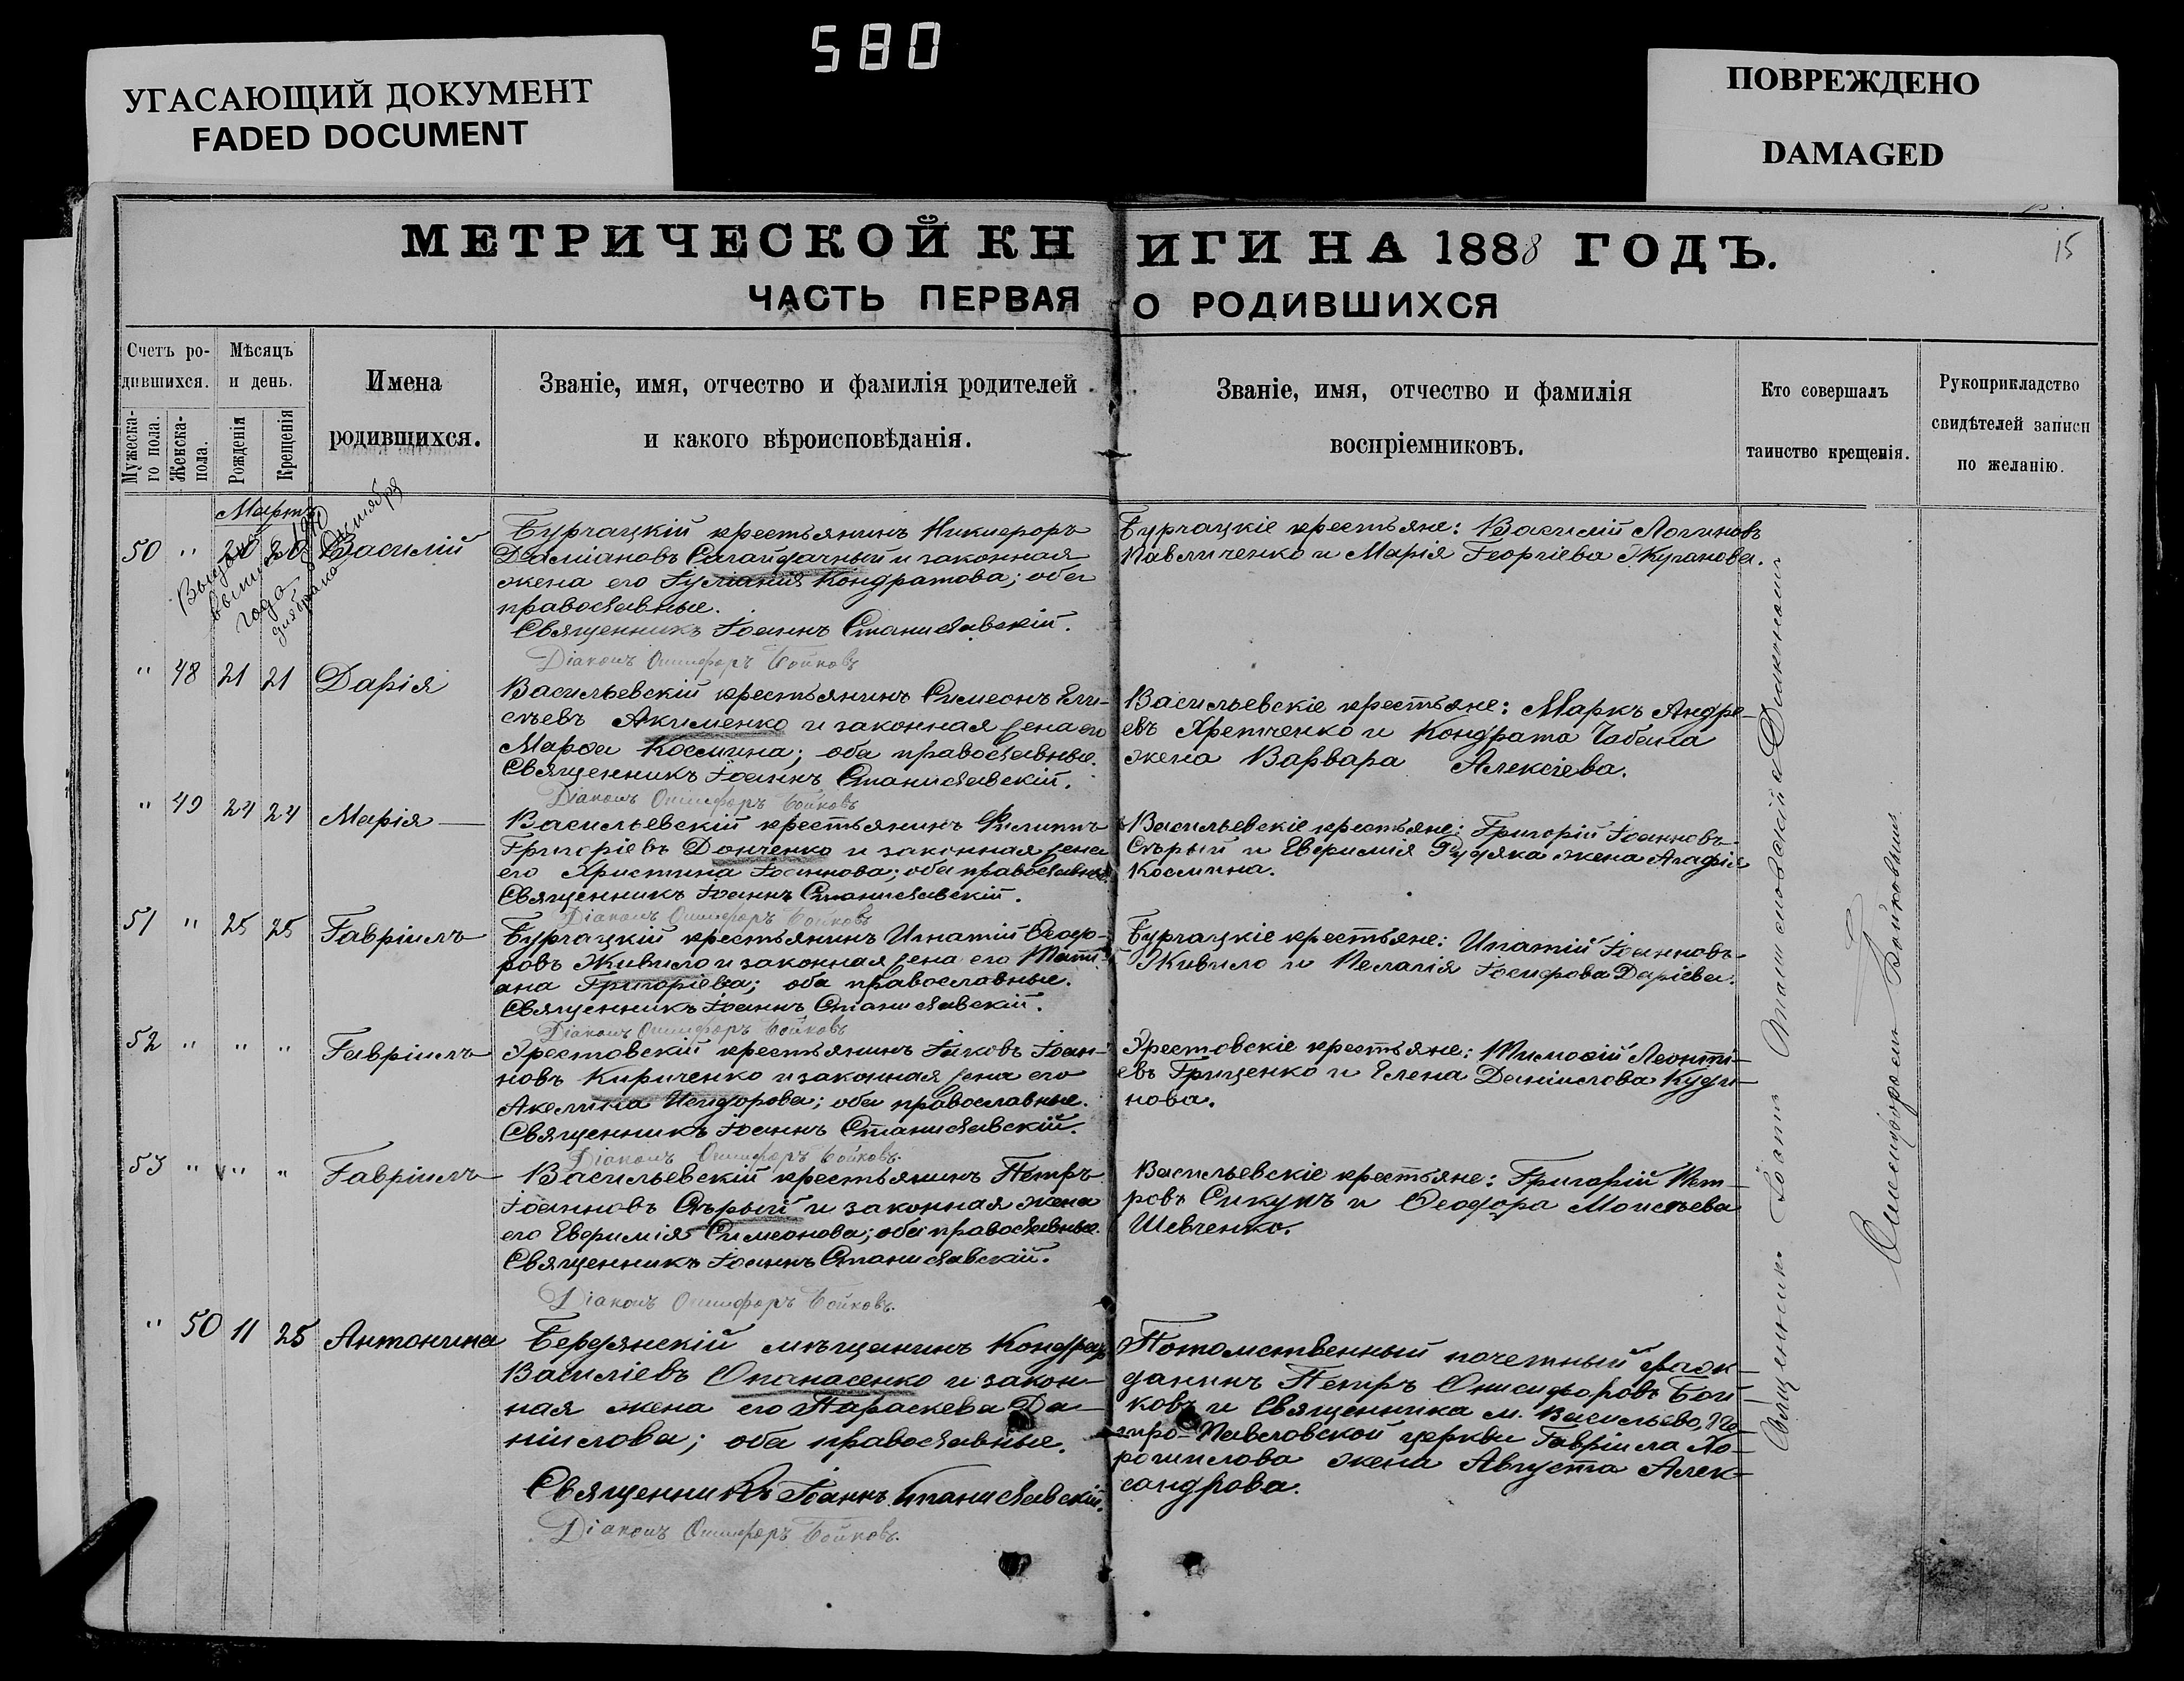 580
УГАСАЮЩИЙ ДОКУМЕНТ
FADED DOCUMENT
ПОВРЕЖДЕНО
DAMAGED
МЕТРИЧЕСКОЙ КНИГИ НА 1888 ГОДЪ.
15
ЧАСТЬ ПЕРВАЯ О РОДИВШИХСЯ
Счетъ ро-
дившихся.
Мужеска-
го пола.
Женска-
пола.
Мѣсяцъ
и день.
Рожденія
Крещенія
Имена
родившихся.
Званіе, имя, отчество и фамилія родителей
и какого вѣроисповѣданія.
Званіе, имя, отчество и фамилія
воспріемниковъ.
Кто совершалъ
таинство крещенія.
Рукоприкладство
свидѣтелей записи
по желанію.
Мартъ
50 " 20 20 Василій
Бурчацкій крестьянинъ Никифоръ
Даміановъ Сагайдачный и законная
жена его Іуліанія Кондратова; оба
православные.
Священникъ Іоаннъ Станиславскій.
Діаконъ Онисифоръ Бойковъ
Бурчацкіе крестьяне: Василій Логиновъ
Павличенко и Марія Георгіева Жуганова.
" 48 21 21 Дарія
Васильевскій крестьянинъ Симеонъ Ели-
сѣевъ Акименко и законная жена его
Марѳа Космина; оба православные.
Священникъ Іоаннъ Станиславскій.
Діаконъ Онисифоръ Бойковъ
Васильевскіе крестьяне: Маркъ Андре-
евъ Хретченко и Кондрата Чабана
жена Варвара Алексіева.
" 49 24 24 Марія
Васильевскій крестьянинъ Филиппъ
Григоріевъ Донченко и законная жена
его Христина Іоаннова; оба православные.
Священникъ Іоаннъ Станиславскій.
Діаконъ Онисифоръ Бойковъ
Васильевскіе крестьяне: Григорій Іоанновъ
Сѣрый и Евфимія жена Агафія
Космина.
51 " 25 25 Гавріилъ
Бурчацкій крестьянинъ Игнатій Ѳеодо-
ровъ Живило и законная жена его Тати-
ана Григоріева; оба православные.
Священникъ Іоаннъ Станиславскій.
Діаконъ Онисифоръ Бойковъ
Бурчацкіе крестьяне: Ипатій Іоанновъ
Живило и Пелагія Іосифова Даріева.
52 " " " Гавріилъ
Эрестовскій крестьянинъ Іаковъ Іоан-
новъ Кириченко и законная жена его
Акелина Исидорова; оба православные.
Священникъ Іоаннъ Станиславскій.
Діаконъ Онисифоръ Бойковъ.
Эрестовскіе крестьяне: Тимоѳій Леонті-
евъ Гриценко и Елена Даніилова Куди-
нова.
53 " " " Гавріилъ
Васильевскій крестьянинъ Петръ
Іоанновъ Сѣрый и законная жена
его Евфимія Симеонова; оба православные.
Священникъ Іоаннъ Станиславскій.
Діаконъ Онисифоръ Бойковъ.
Васильевскіе крестьяне: Григорій Пет-
ровъ Сикунъ и Ѳеодора Моисѣева
Шевченко.
" 50 11 25 Антонина
Бердянскій мѣщанинъ Кондратъ
Василіевъ Опанасенко и закон-
ная жена его Параскева Да-
ніилова; оба православные.
Священникъ Іоаннъ Станиславскій.
Діаконъ Онисифоръ Бойковъ.
Потомственный почетный граж-
данинъ Петръ Онисифоровъ Бой-
ковъ и Священника м. Васильево, Пе-
тро-Павловской церкви Гавріила Хо-
рошилова жена Августа Алек-
сандрова.
Священникъ Іоаннъ Станиславскій съ Діакономъ
Онисифоромъ Бойковымъ